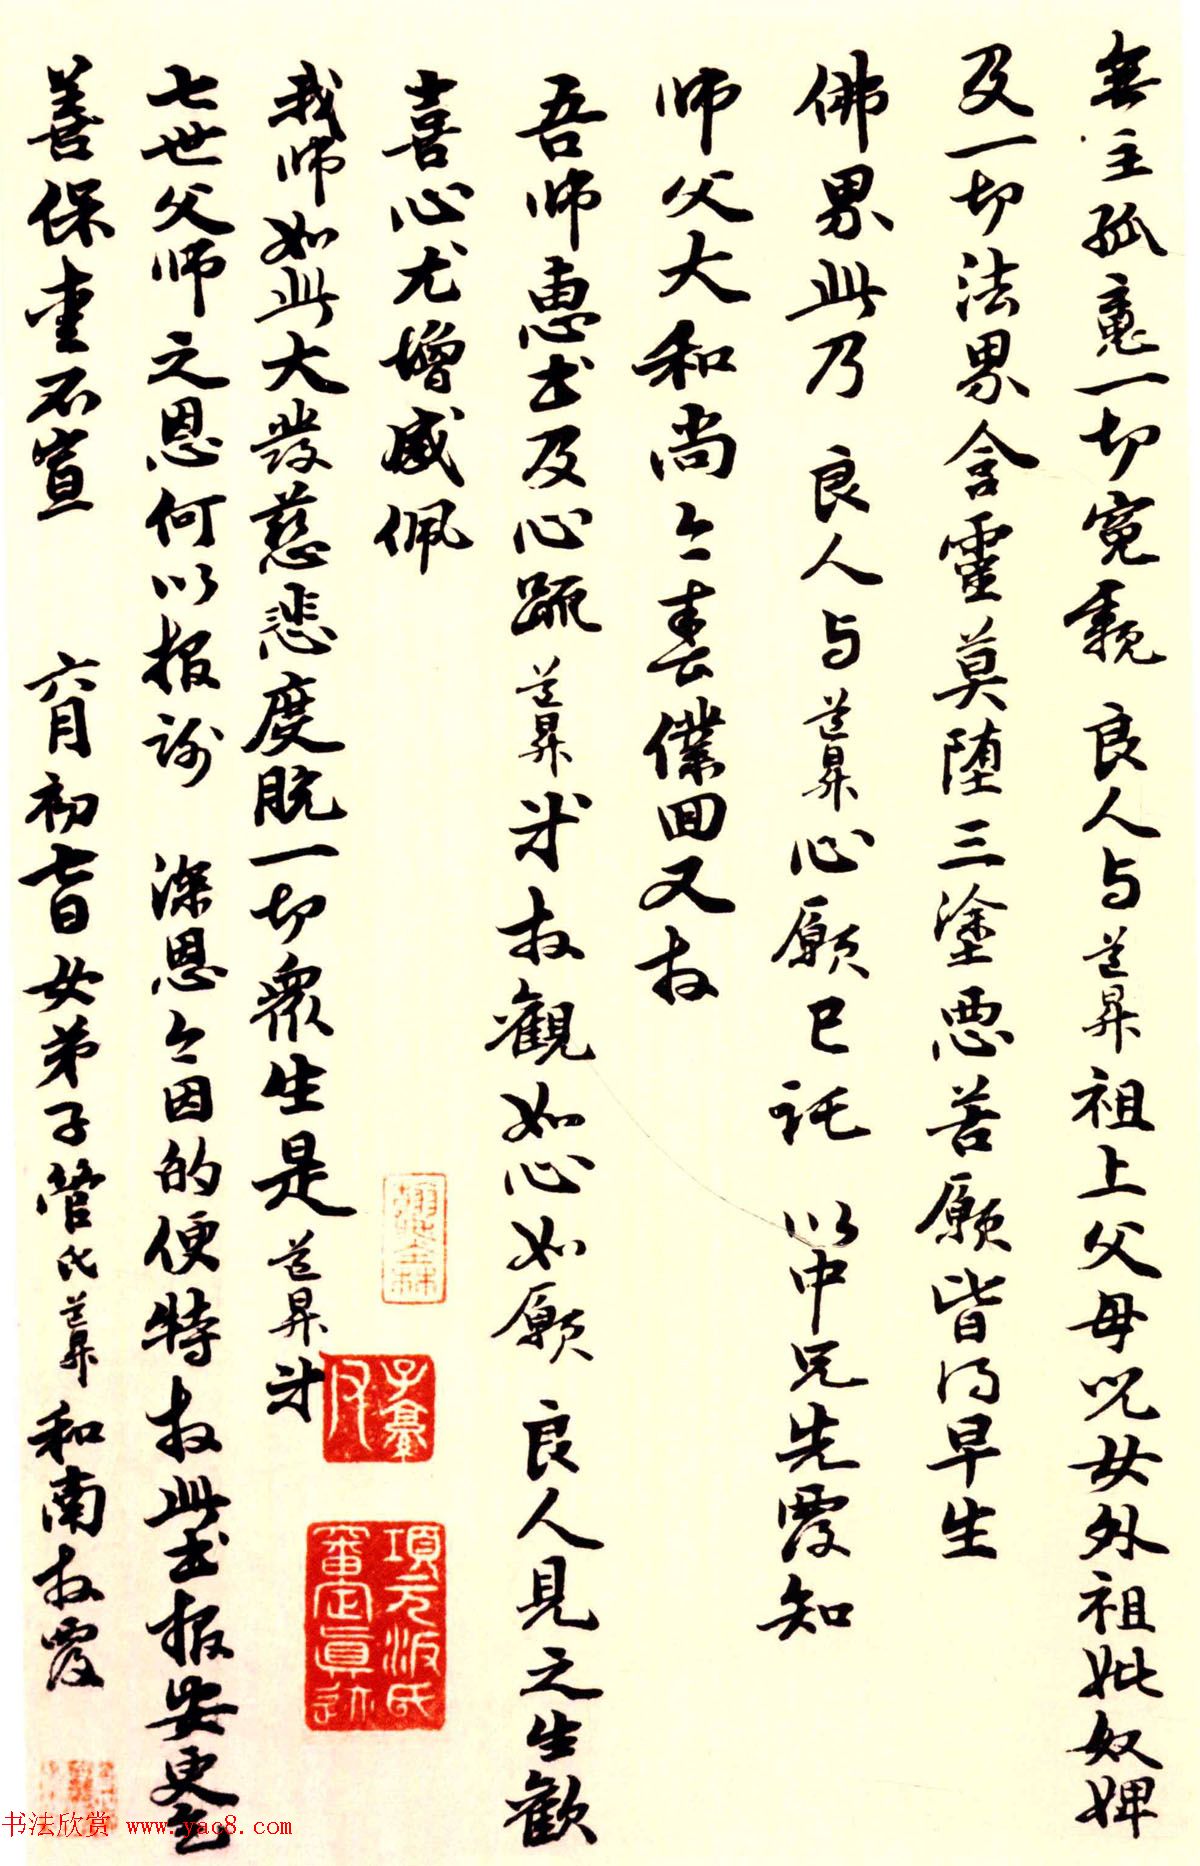 無主孤䰟一切寃親 良人与道昇祖上父母兒女外祖妣奴婢
及一切法界含靈莫堕三塗惡苦願皆得早生
佛界此乃 良人与道昇心願已託 以中兄先覆知
师父大和尚今春僕回又收
吾师惠書及心疏道昇拜收觀如心如願 良人見之生歡
喜心尤增感佩
我师如此大發慈悲度脱一切衆生是道昇拜
七世父师之恩何以报謝 深恩今因的便特收此書报安更乞
善保重不宣 六月初七日女弟子管氏道昇和南收覆
子京父印
項元汴氏審定真跡
书法欣赏 www.yac8.com